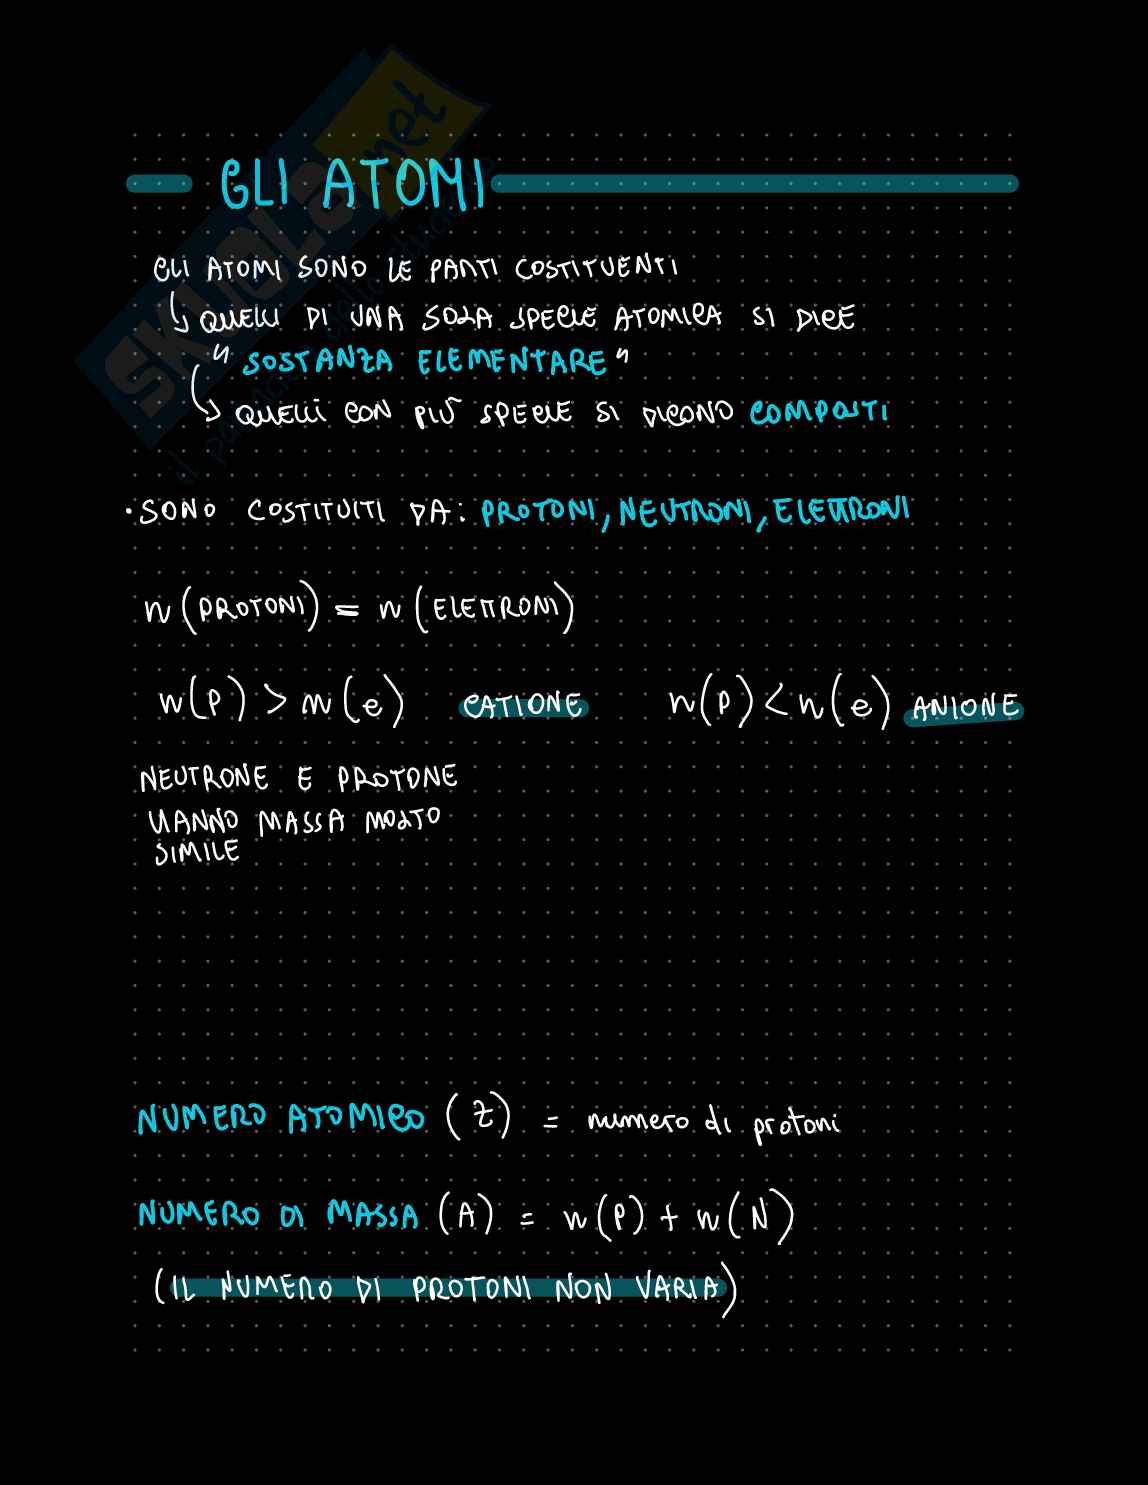 GLI ATOMI
GLI ATOMI SONO LE PARTI COSTITUENTI
QUELLI DI UNA SOLA SPECIE ATOMICA SI DICE
"SOSTANZA ELEMENTARE"
QUELLI CON PIÙ SPECIE SI DICONO COMPOSTI
• SONO COSTITUITI DA: PROTONI, NEUTRONI, ELETTRONI
n (PROTONI) = n (ELETTRONI)
n(P) > n(e) CATIONE n(P) < n(e) ANIONE
NEUTRONE E PROTONE
HANNO MASSA MOLTO
SIMILE
NUMERO ATOMICO (Z) = numero di protoni
NUMERO DI MASSA (A) = n(P) + n(N)
(IL NUMERO DI PROTONI NON VARIA)
SKUOLA.net